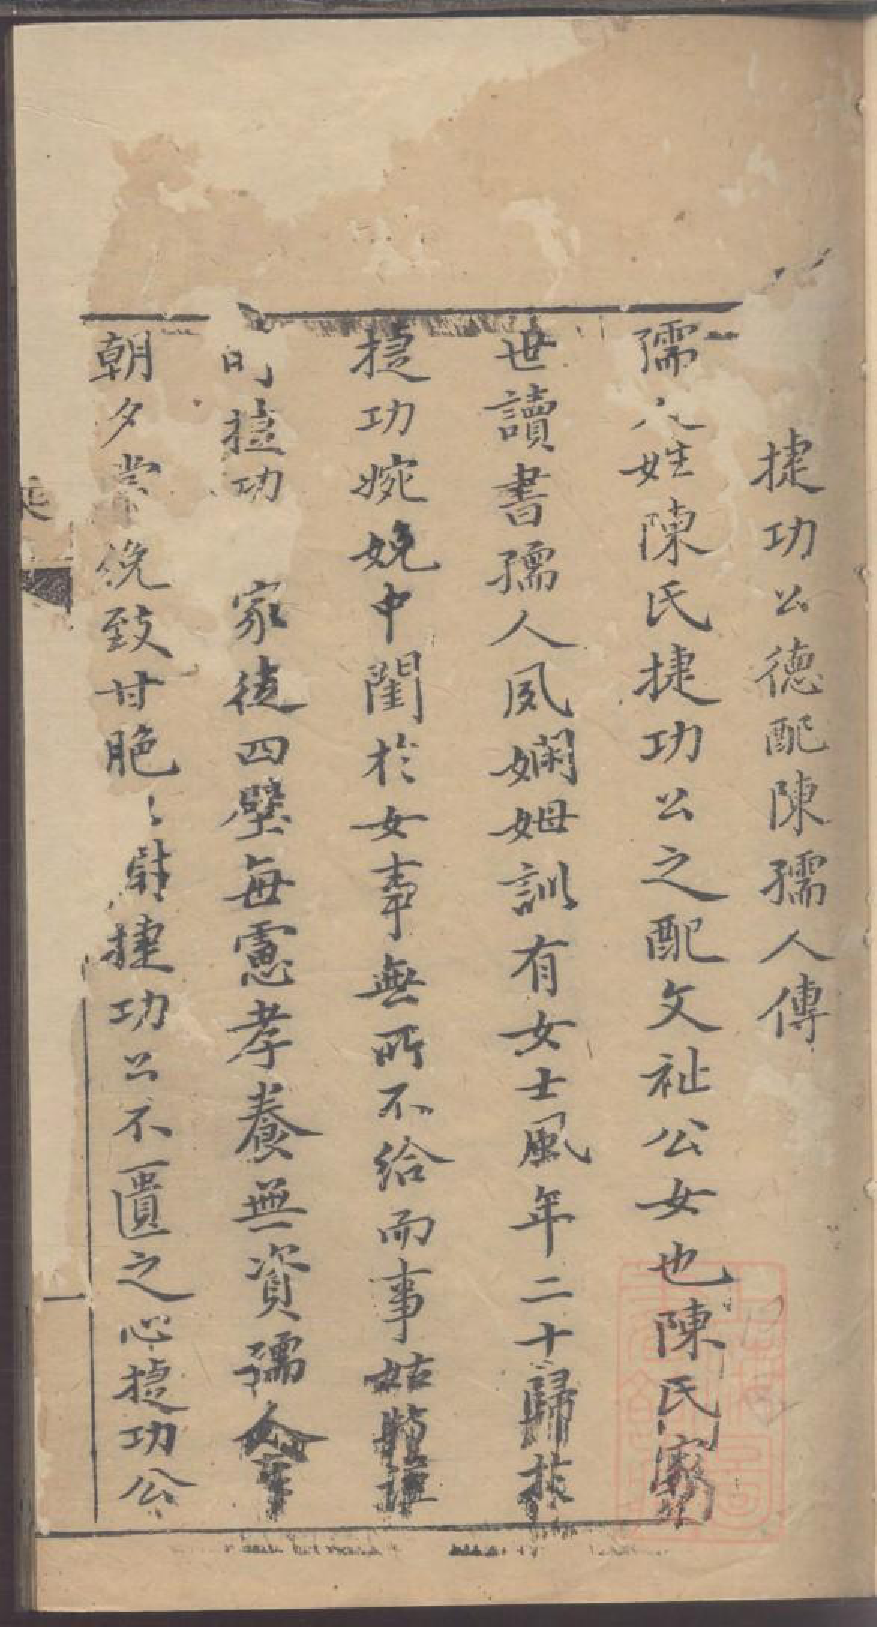 捷功公德配陳孺人傳
孺人姓陳氏捷功公之配文祉公女也陳氏
世讀書孺人夙嫻姆訓有女士風年二十歸於
捷功婉娩中閨於女事無所不給而事姑
時捷功 家徒四壁每慮孝養無資孺人
朝夕黽勉致甘脆以慰捷功公不匱之心捷功公